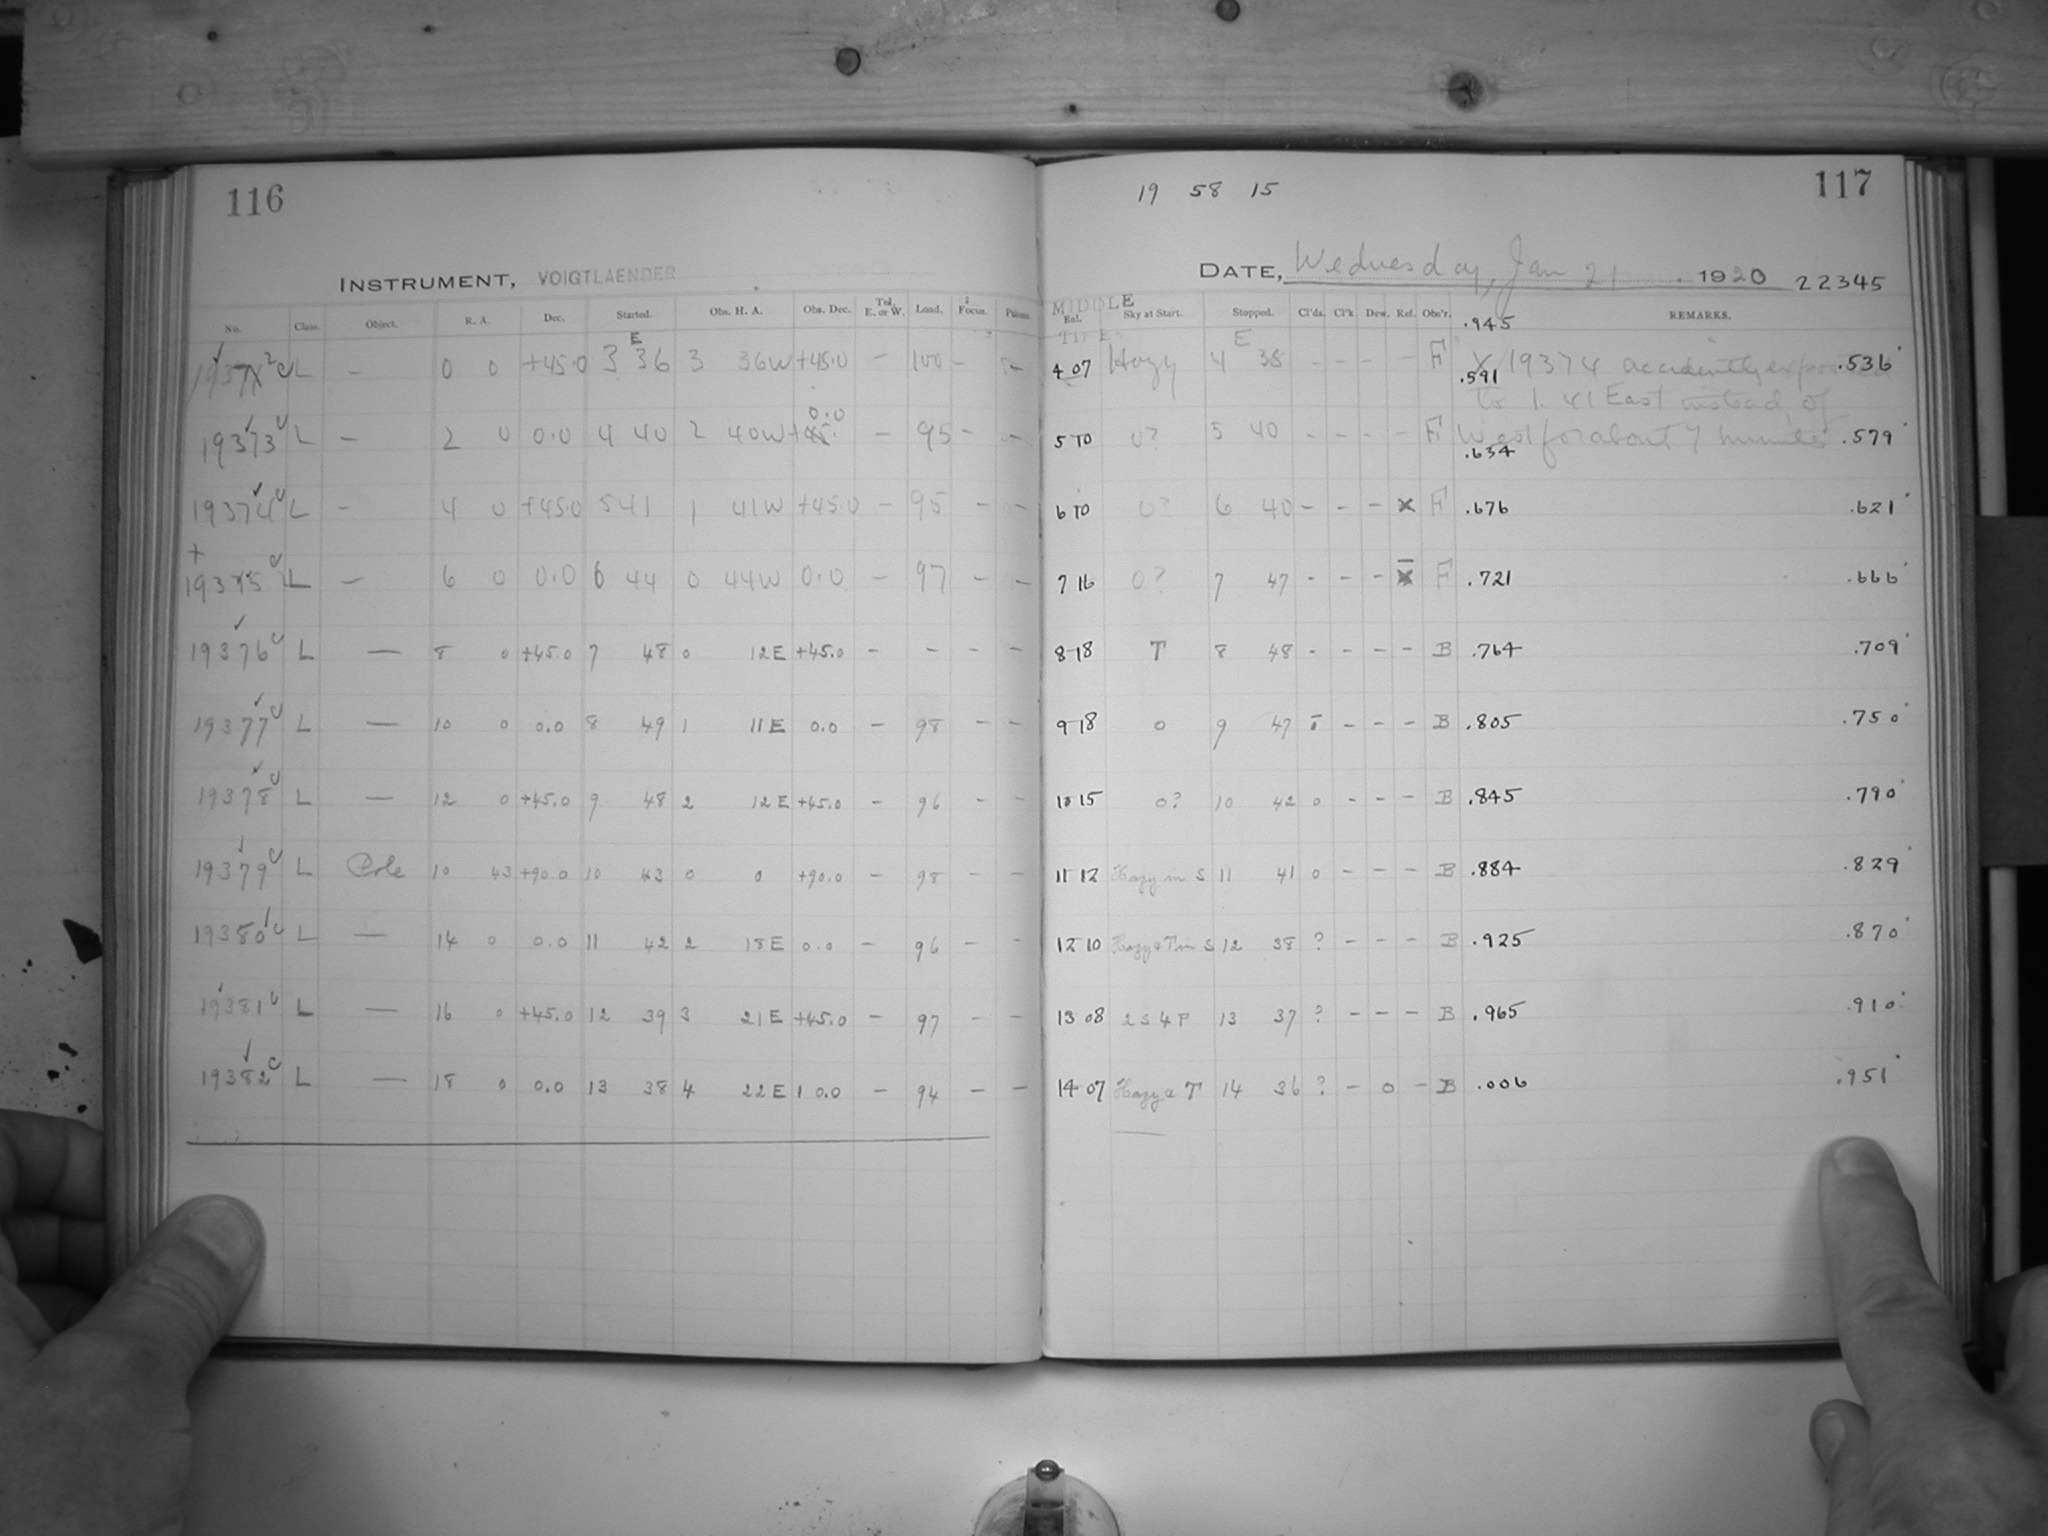 116
INSTRUMENT, VOIGTLAENDER
No. Class. Object. R. A. Dec. Started. Obs. H. A. Obs. Dec. Tel. E. or W. Load. Focus.
E
L - 0 0 +45.0 3 36 3 36W +45.0 - 100 -
0.0
19373 L - 2 0 0.0 4 40 2 40W - 95 - -
19374 L - 4 0 +45.0 5 41 1 41W +45.0 - 95 - -
+
19375 L - 6 0 0.0 6 44 0 44W 0.0 - 97 - -
19376 L - 8 0 +45.0 7 48 0 12E +45.0 - - - -
19377 L - 10 0 0.0 8 49 1 11E 0.0 - 98 - -
19378 L - 12 0 +45.0 9 48 2 12E +45.0 - 96 - -
19379 L Pole 10 43 +90.0 10 43 0 0 +90.0 - 98 - -
19380 L - 14 0 0.0 11 42 2 18E 0.0 - 96 - -
19381 L - 16 0 +45.0 12 39 3 21E +45.0 - 97 - -
19382 L - 18 0 0.0 13 38 4 22E 0.0 - 94 - -
19 58 15
117
DATE, Wednesday, Jan 21 1920 22345
MIDDLE
Sky at Start. Stopped. Cl'ds. Cl'k. Dew. Ref. Obs'r. REMARKS.
.945
E
4 07 Hazy 4 38 - - - - F X 19374 accidently exposed .536
.591
to 1.41 East instead of
5 10 0? 5 40 - - - - F West for about 7 minutes .579
.634
6 10 0? 6 40 - - - x F .676 .621
7 16 0? 7 47 - - - x F .721 .666
8 18 T 8 48 - - - - B .764 .709
9 18 0 9 47 - - - B .805 .750
10 15 0? 10 42 0 - - - B .845 .790
11 12 Hazy in S 11 41 0 - - - B .884 .829
12 10 Hazy & T in S 12 38 ? - - - B .925 .870
13 08 2 S 4 P 13 37 ? - - - B .965 .910
14 07 Hazy & T 14 36 ? - 0 - B .006 .951